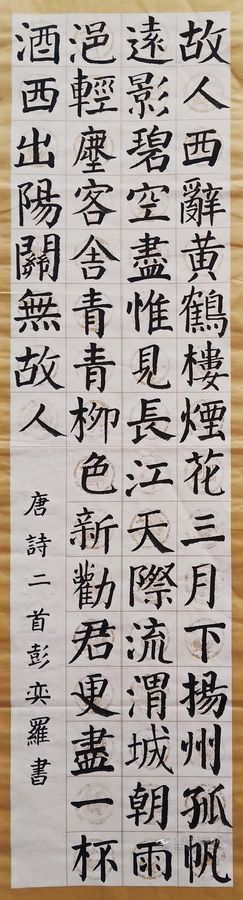 故人西辭黄鶴樓煙花三月下揚州孤帆
遠影碧空盡惟見長江天際流渭城朝雨
浥輕塵客舍青青柳色新勸君更盡一杯
酒西出陽關無故人
唐詩二首彭奕羅書